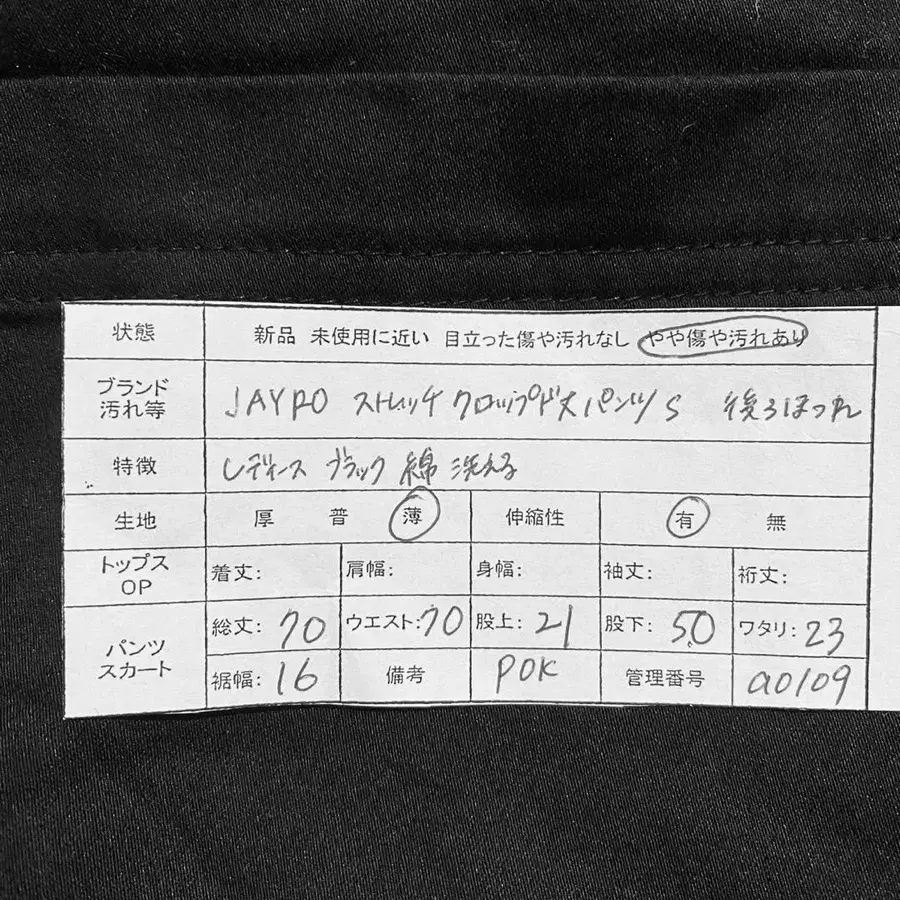 状態 新品 未使用に近い 目立った傷や汚れなし やや傷や汚れあり
ブランド
汚れ等 JAYRO ストレッチ クロップド丈パンツ/S 後ろほつれ
特徴 レディース ブラック 綿 洗える
生地 厚 普 薄 伸縮性 有 無
トップス
OP 着丈: 肩幅: 身幅: 袖丈: 裄丈:
パンツ
スカート 総丈: 70 ウエスト: 70 股上: 21 股下: 50 ワタリ: 23
裾幅: 16 備考 POK 管理番号 a0109